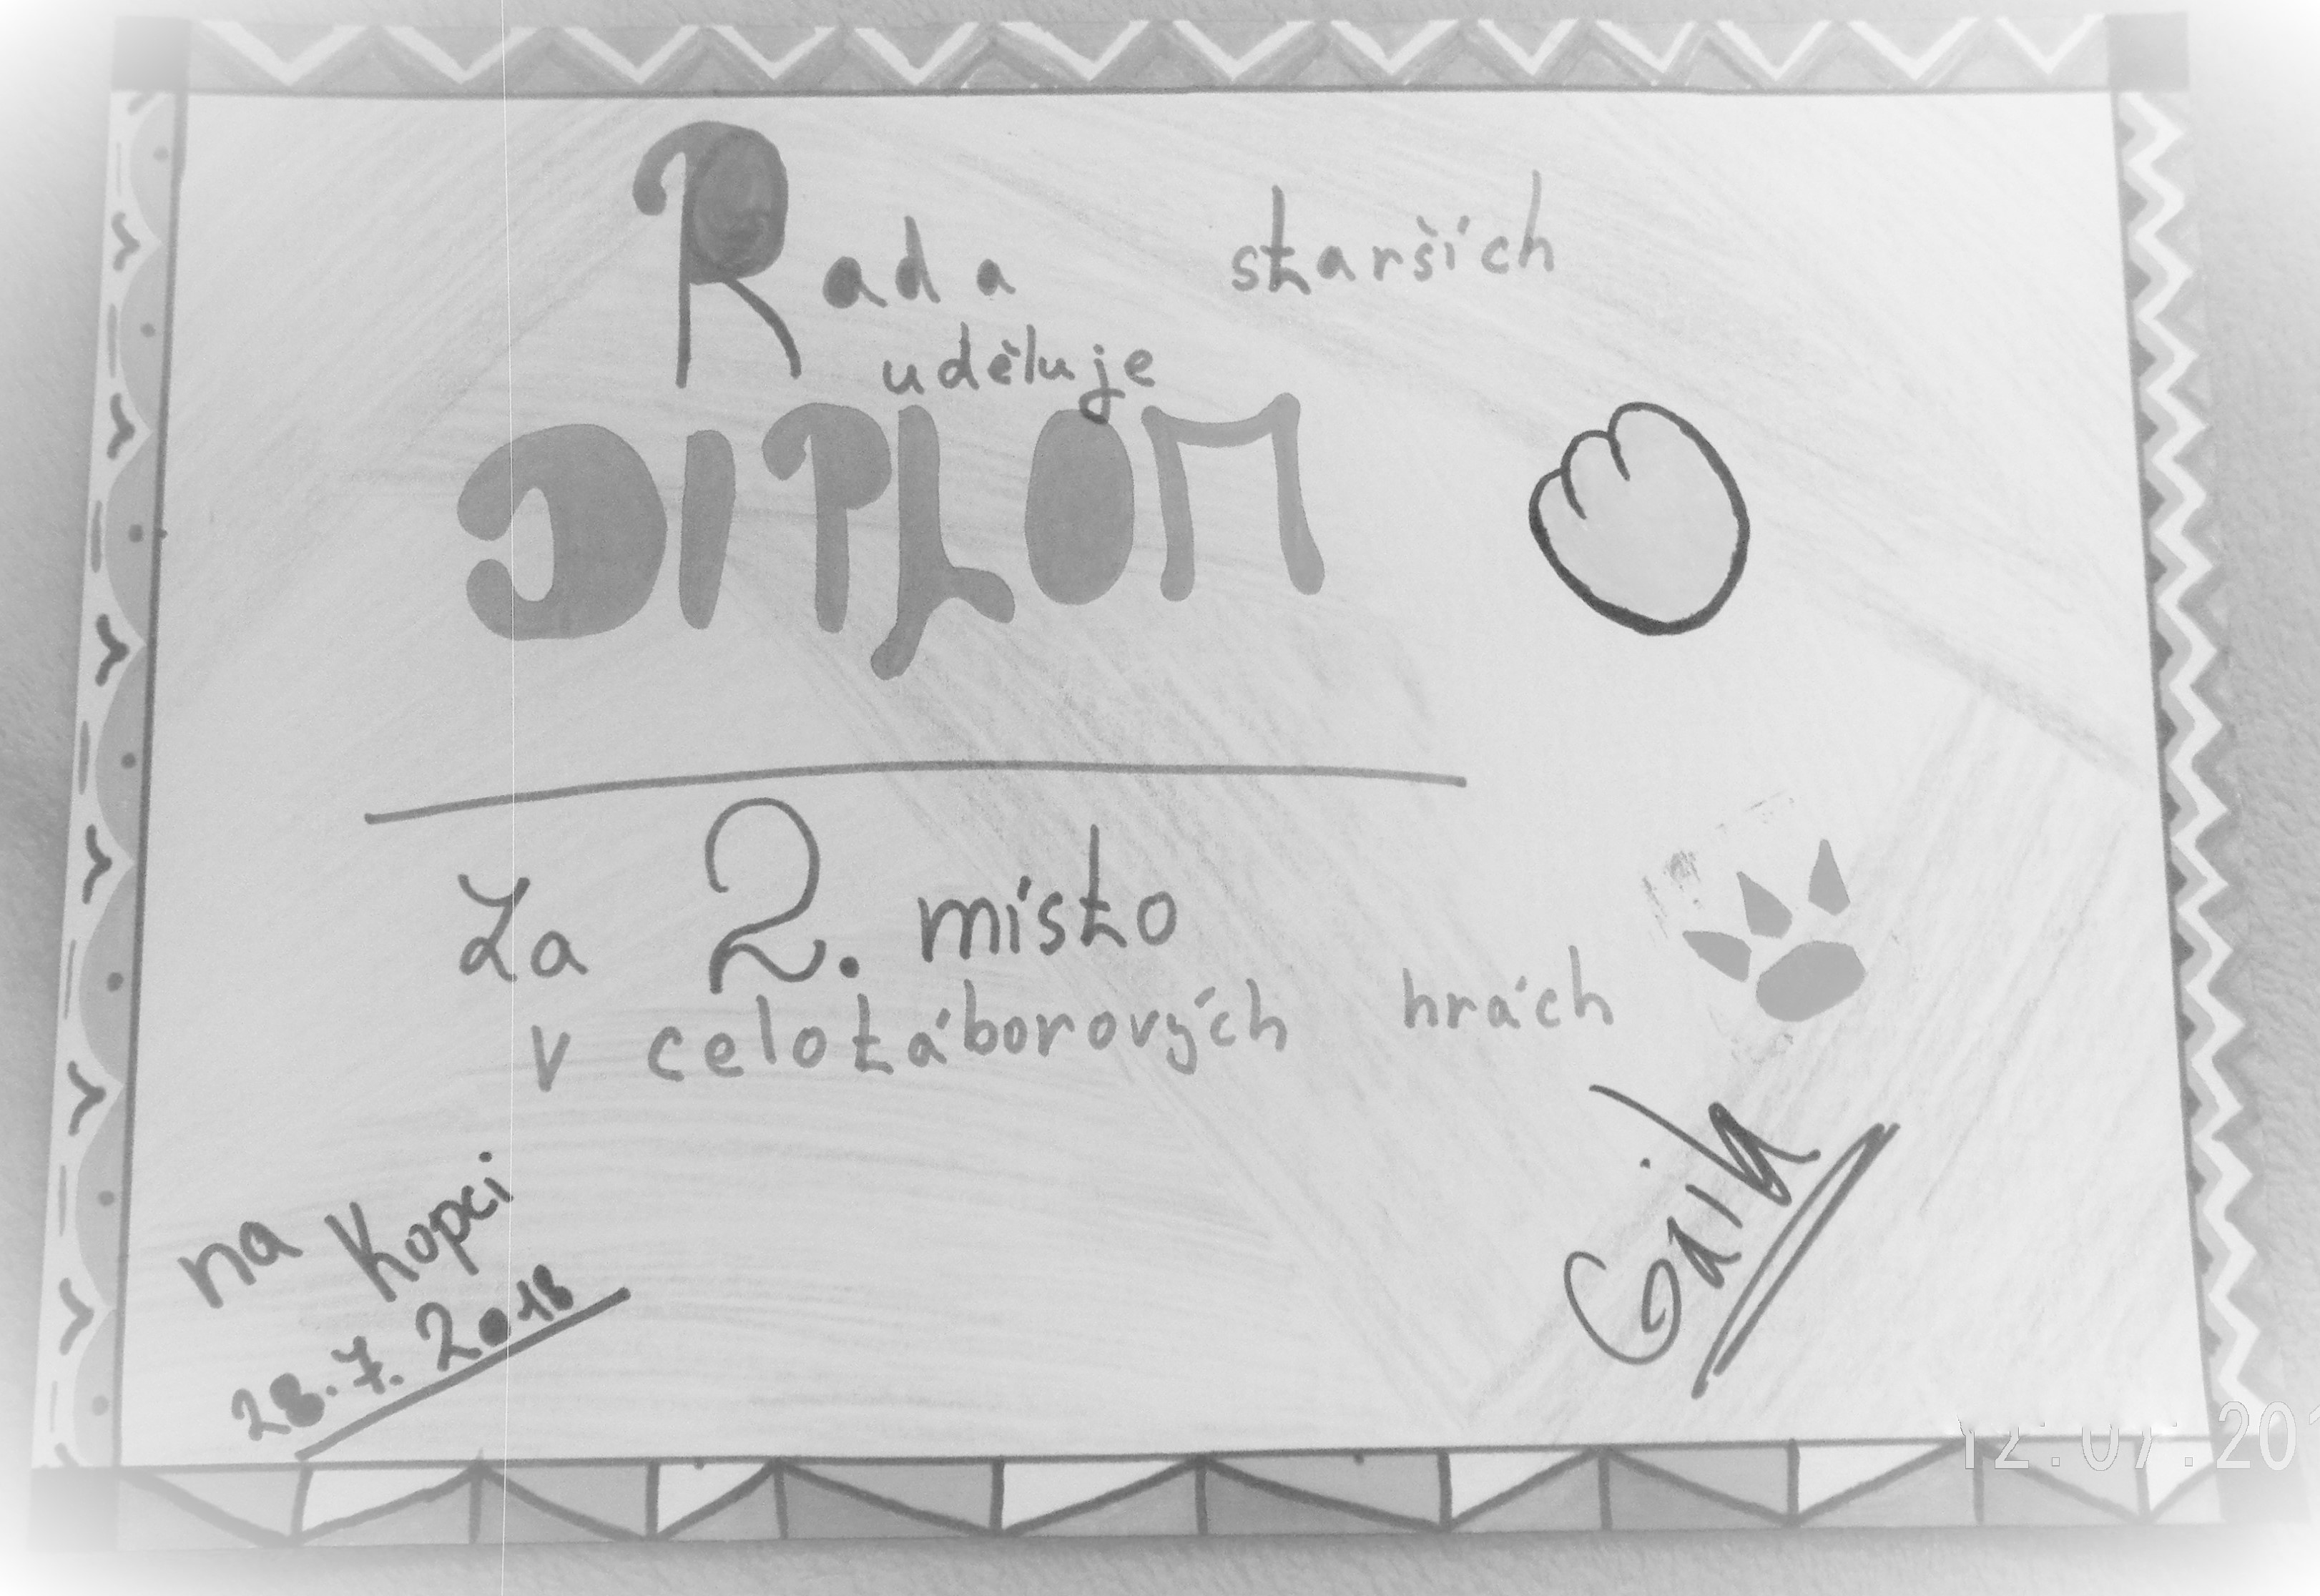 Rada starších
uděluje
DIPLOM
Za 2. místo
v celotáborových hrách
na Kopci
28.7.2018